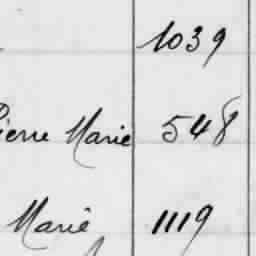 1039
Pierre Marie 548
Marie 1119